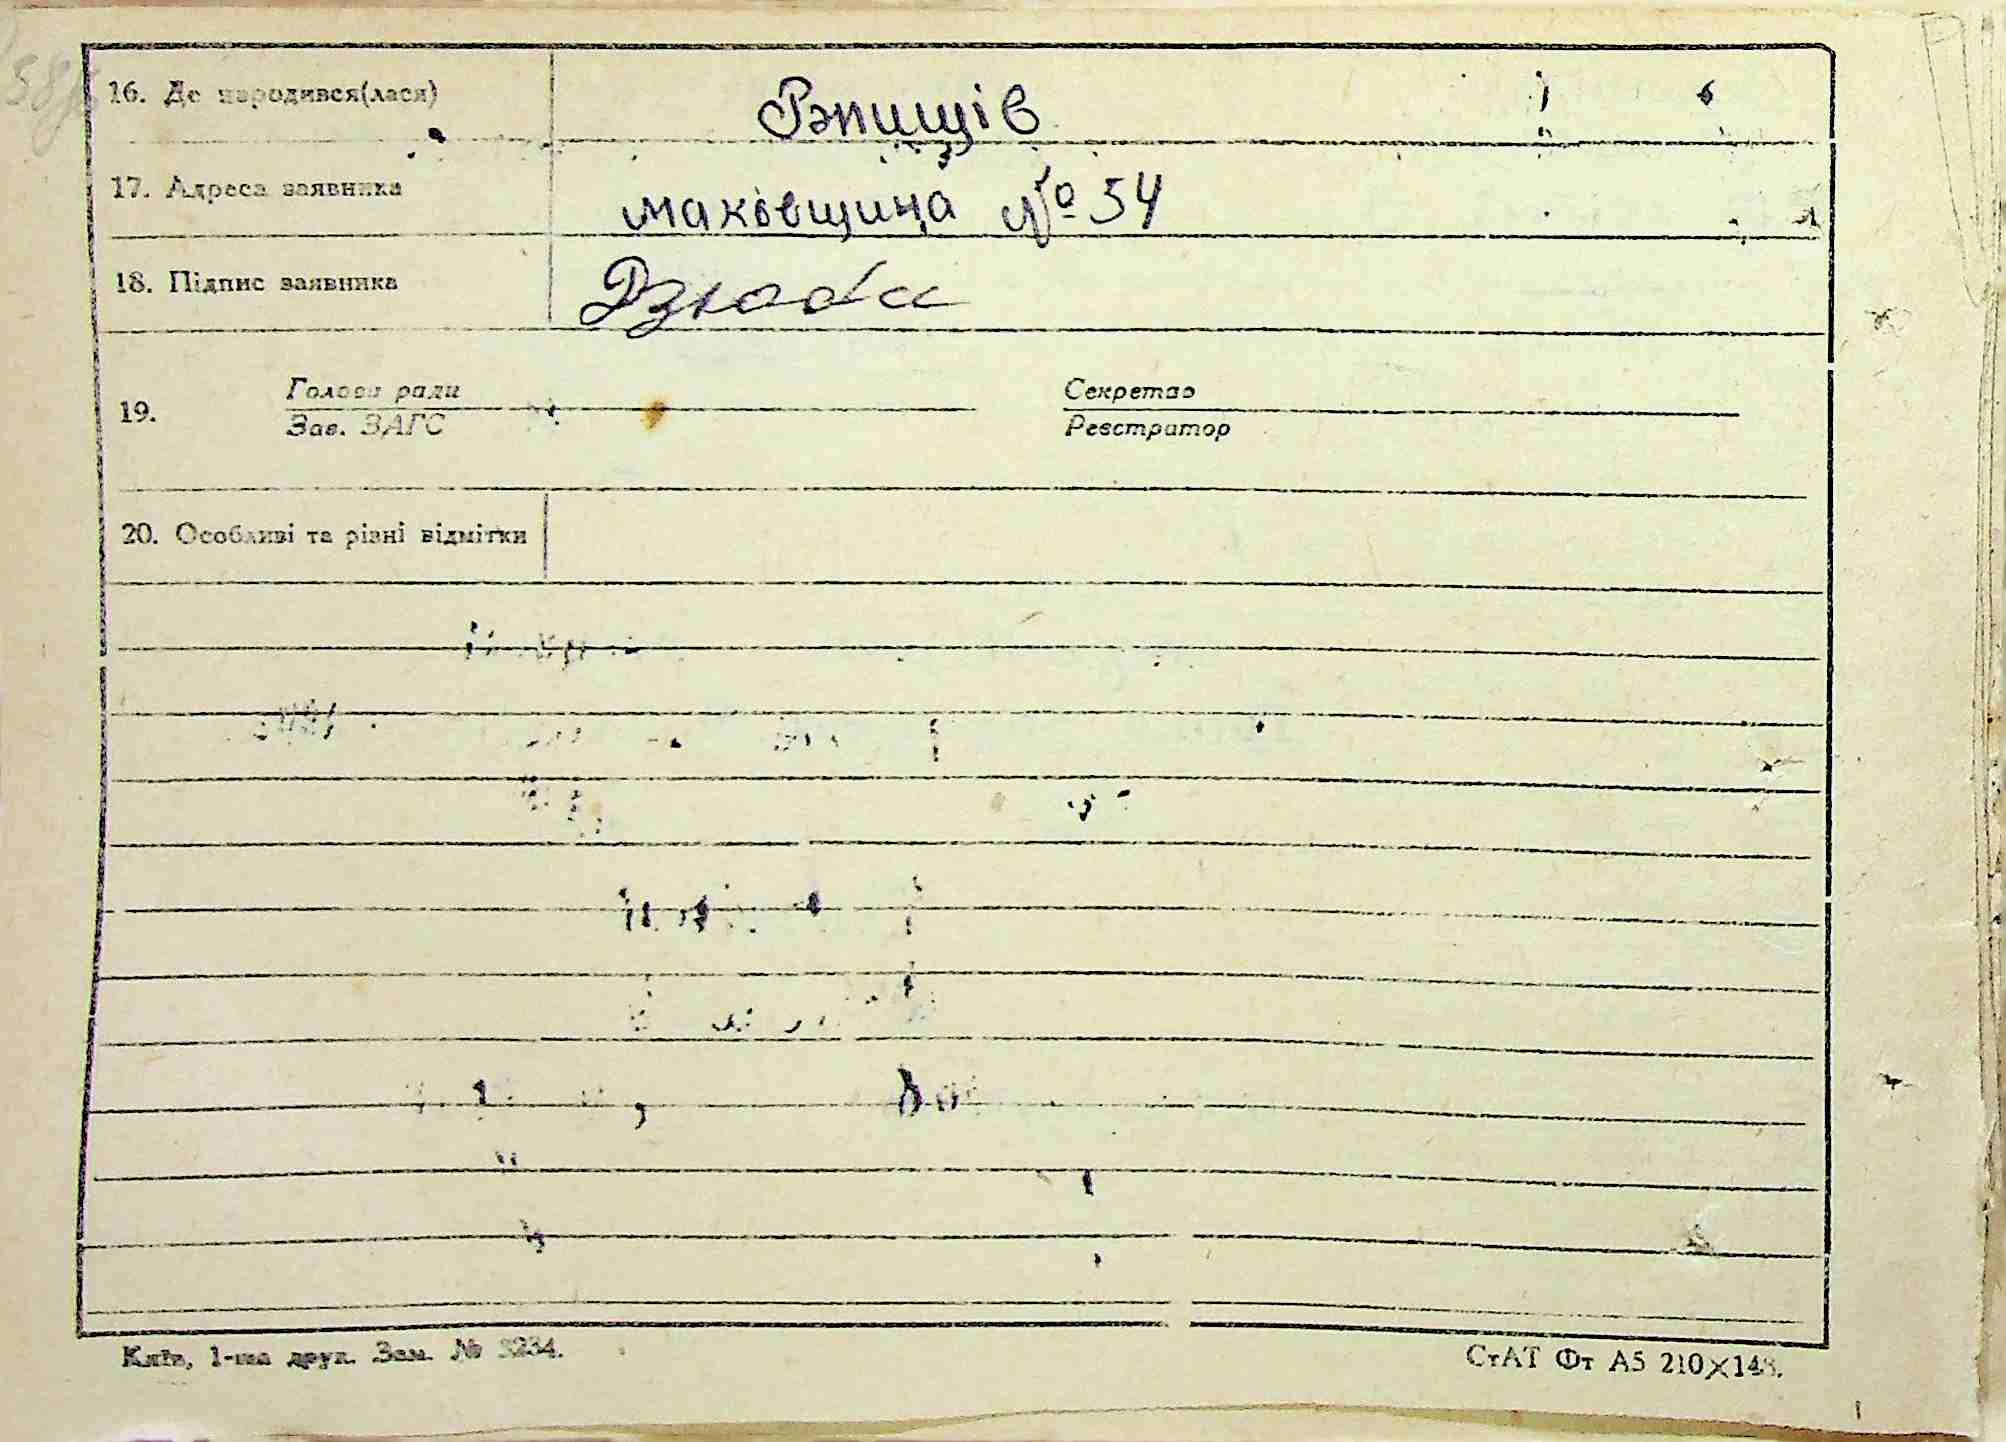 16. Де народився(лася) Ржищів
17. Адреса заявника маковщина № 54
18. Підпис заявника Дзюба
19. Голова ради Секретар
Зав. ЗАГС Реєстратор
20. Особливі та різні відмітки
Київ, 1-ша друк. Зам. № 3234.
СтАТ Фт А5 210×148.